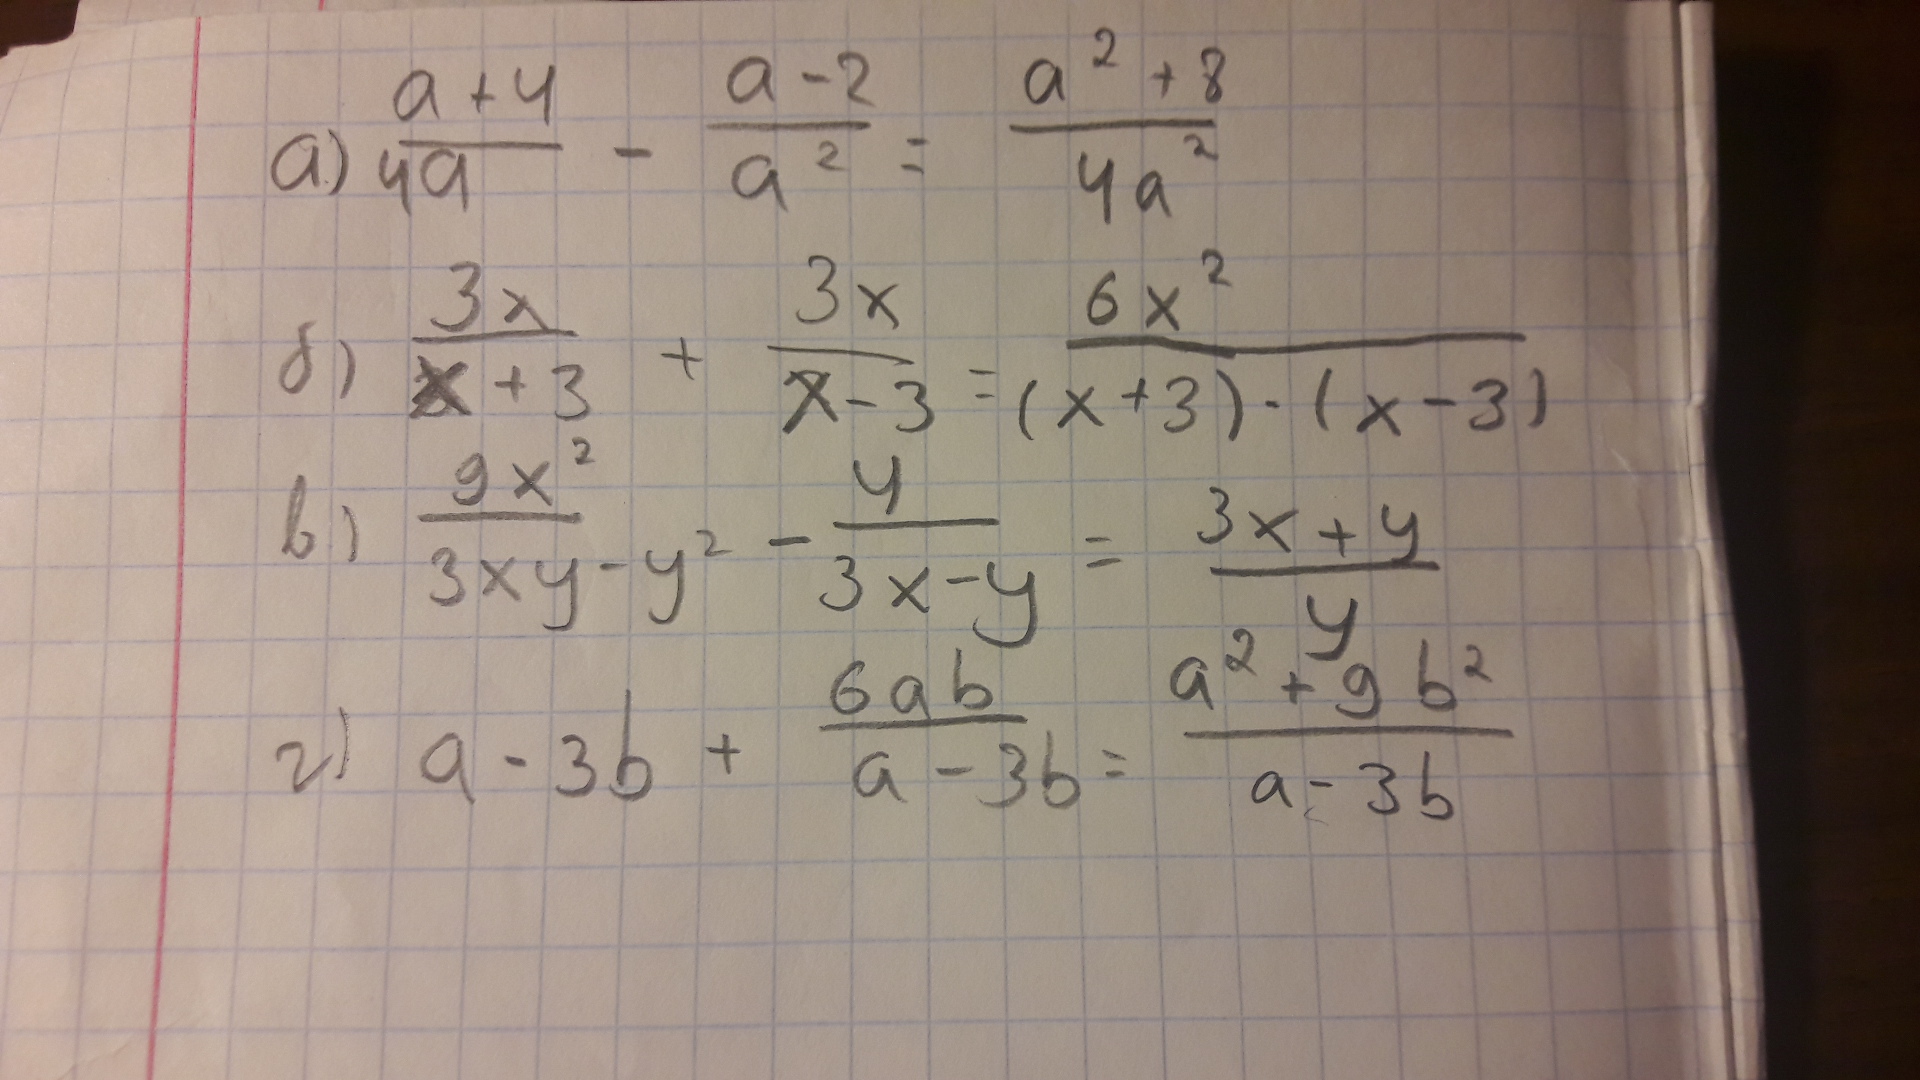 а) (a+4)/(4a) - (a-2)/(a²) = (a²+8)/(4a²)
б) (3x)/(x+3) + (3x)/(x-3) = (6x²)/((x+3)·(x-3))
в) (9x²)/(3xy-y²) - (y)/(3x-y) = (3x+y)/(y)
г) a-3b + (6ab)/(a-3b) = (a²+9b²)/(a-3b)